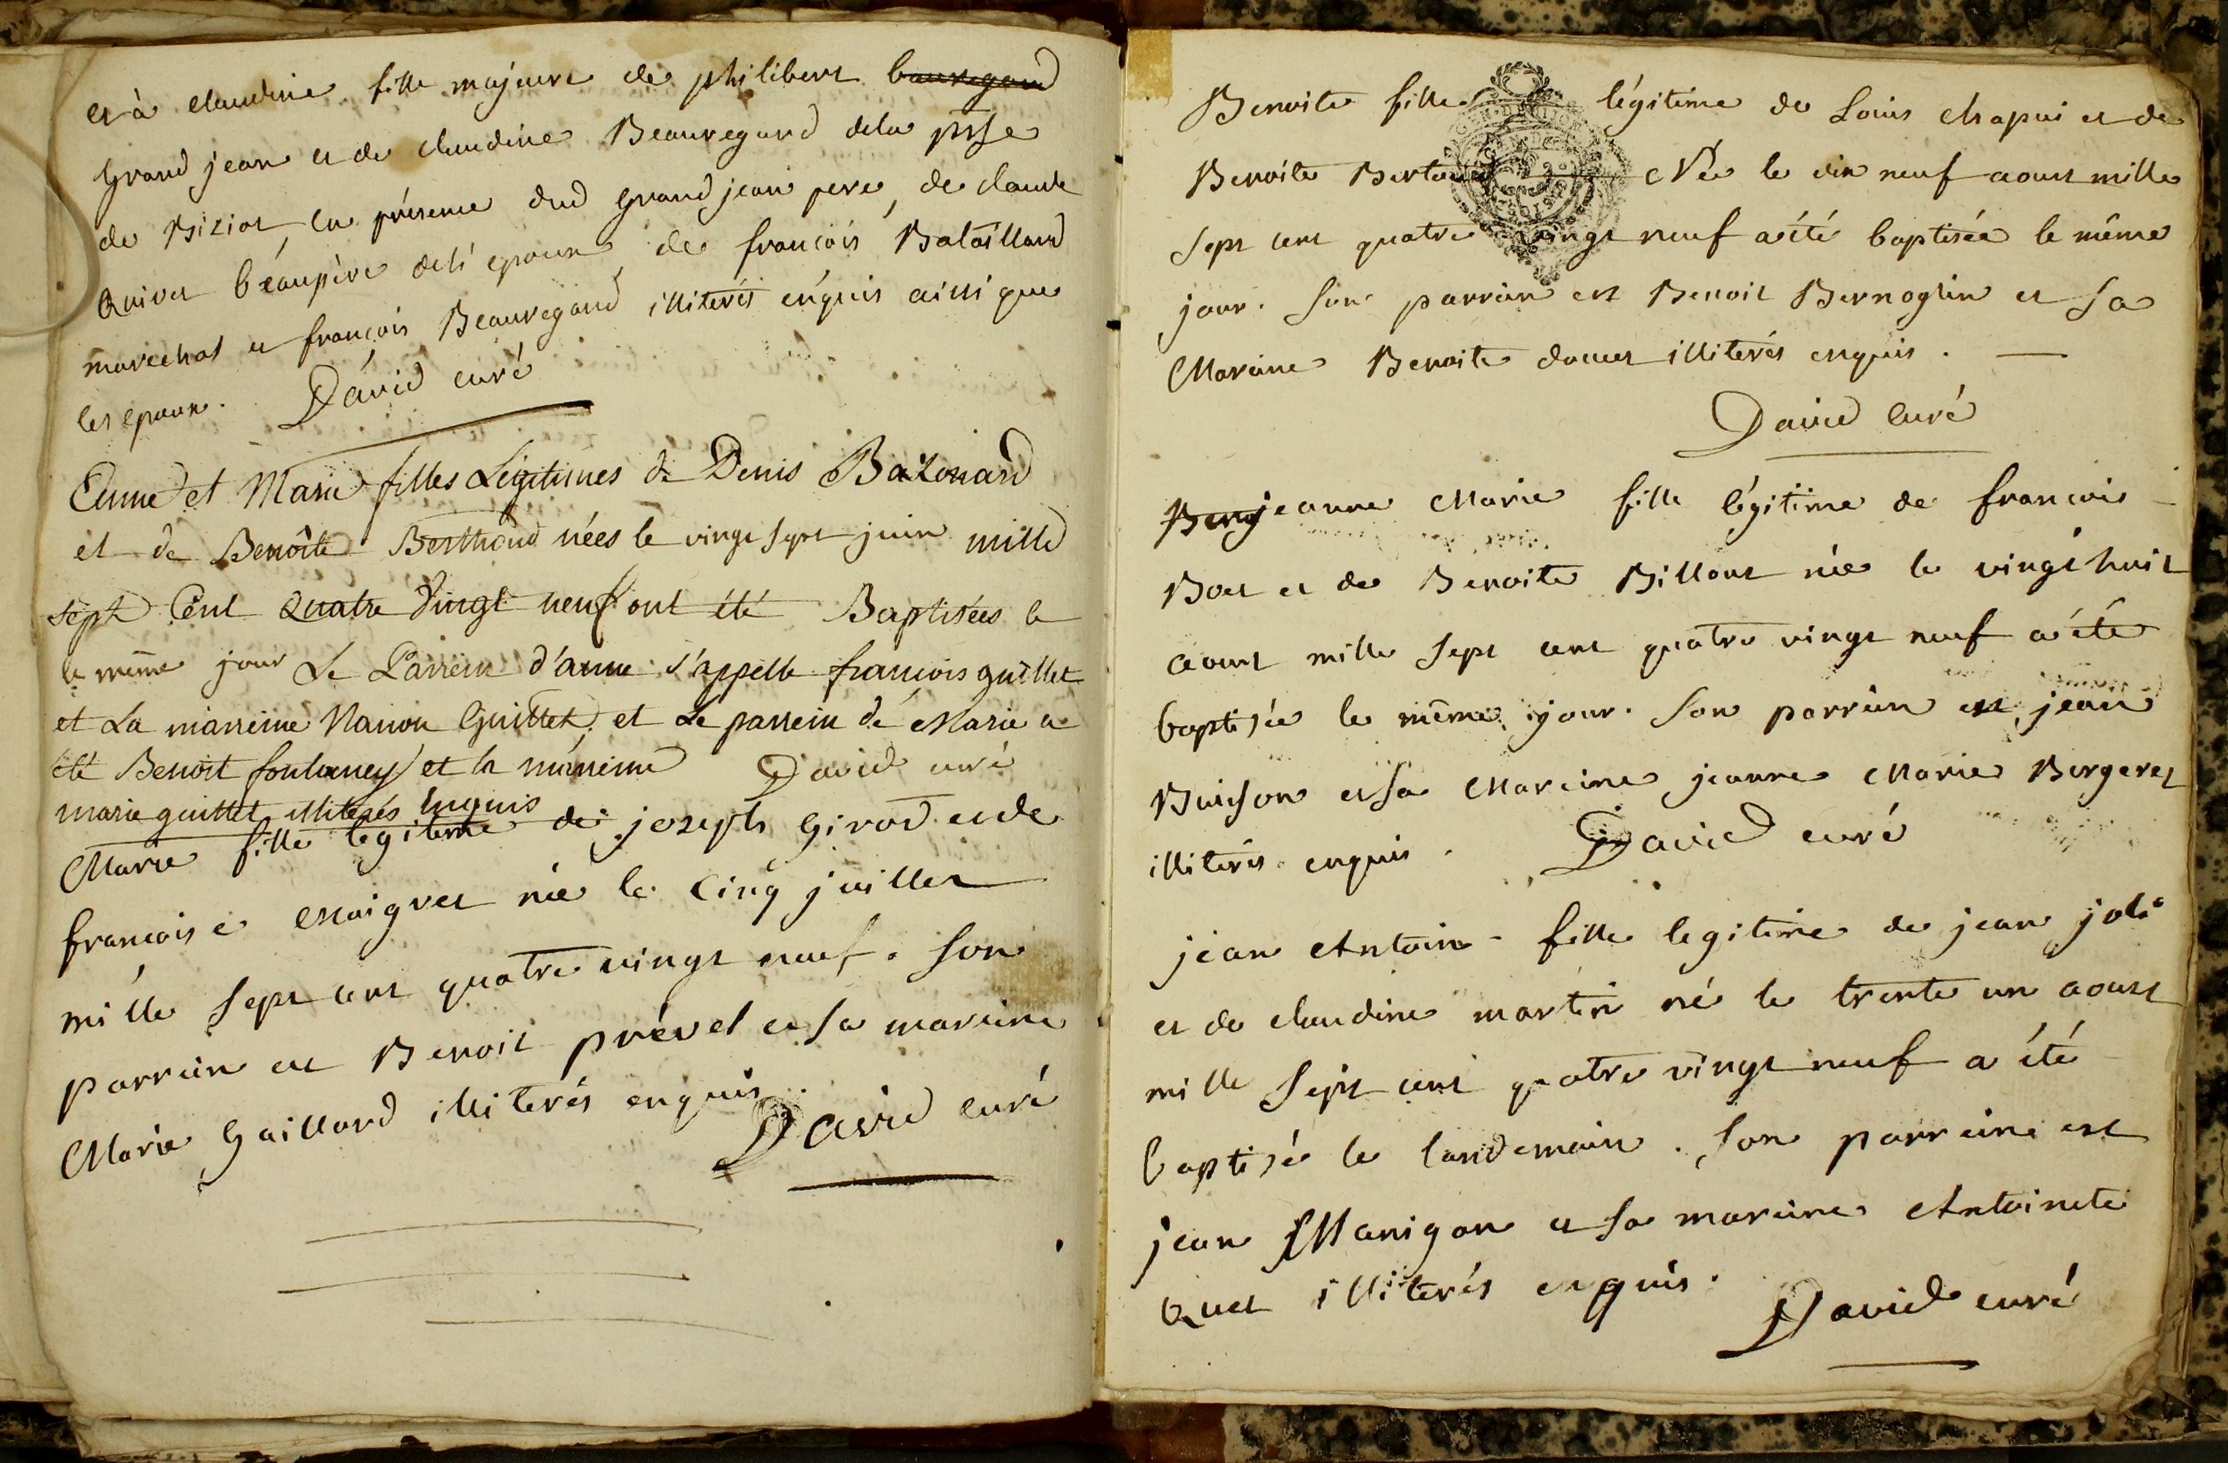 et à claudine fille majeure de philibert bauregard
grand jean et de claudine Beauregard dela psse
de Biziat, en présence dud grand jean pere, de claude
Quivet béaupère deli epoux, de francois Bataillard
marechal et françois Beauregard illiterés enquis ainsi que
les epoux. David curé
Anne et Marie filles Légitimes de Denis Batonard
et de Benoîte Berthoud nées le vingt sept juin mille
sept Cent Quatre Vingt neuf ont été Baptisées le
le même jour Le Parrein d'anne s'appelle francois guillet
et La marreine Nanon Guillet, et Le parrein de Marie a
été Benoit fontaney et la marreine David curé
marie guillet illiterés Enquis
Marie fille legitime de joseph Girod et de
francoise Maigret née le Cinq juillet
mille sept cent quatre vingt neuf. Son
parrein est Benoit prevel et sa mareine
Marie Gaillard illiterés enquis.
David curé
Benoite fille légitime de Louis chapui et de
Benoite Née le dix neuf aoust mille
sept cent quatre vingt neuf a été baptisée le même
jour. Son parrain est Benoit Bernoglin et sa
Mareine Benoite doucet illiterés enquis.
David Curé
Benj jeanne Marie fille légitime de francois
Boet et de Benoite Billout née le vingt huit
aoust mille sept cent quatre vingt neuf a été
baptisée le même jour. Son parrein est jean
Buison et sa Mareine jeanne Marie Bergeret
illiterés enquis. David curé
jean Antoine fille legitime de jean joli
et de claudine martin né le trente un aoust
mille sept cent quatre vingt neuf a été
baptisé le landemain. Son parreine est
jean Manigon et sa mareine Antoinete
Quet illiterés enquis.
David curé